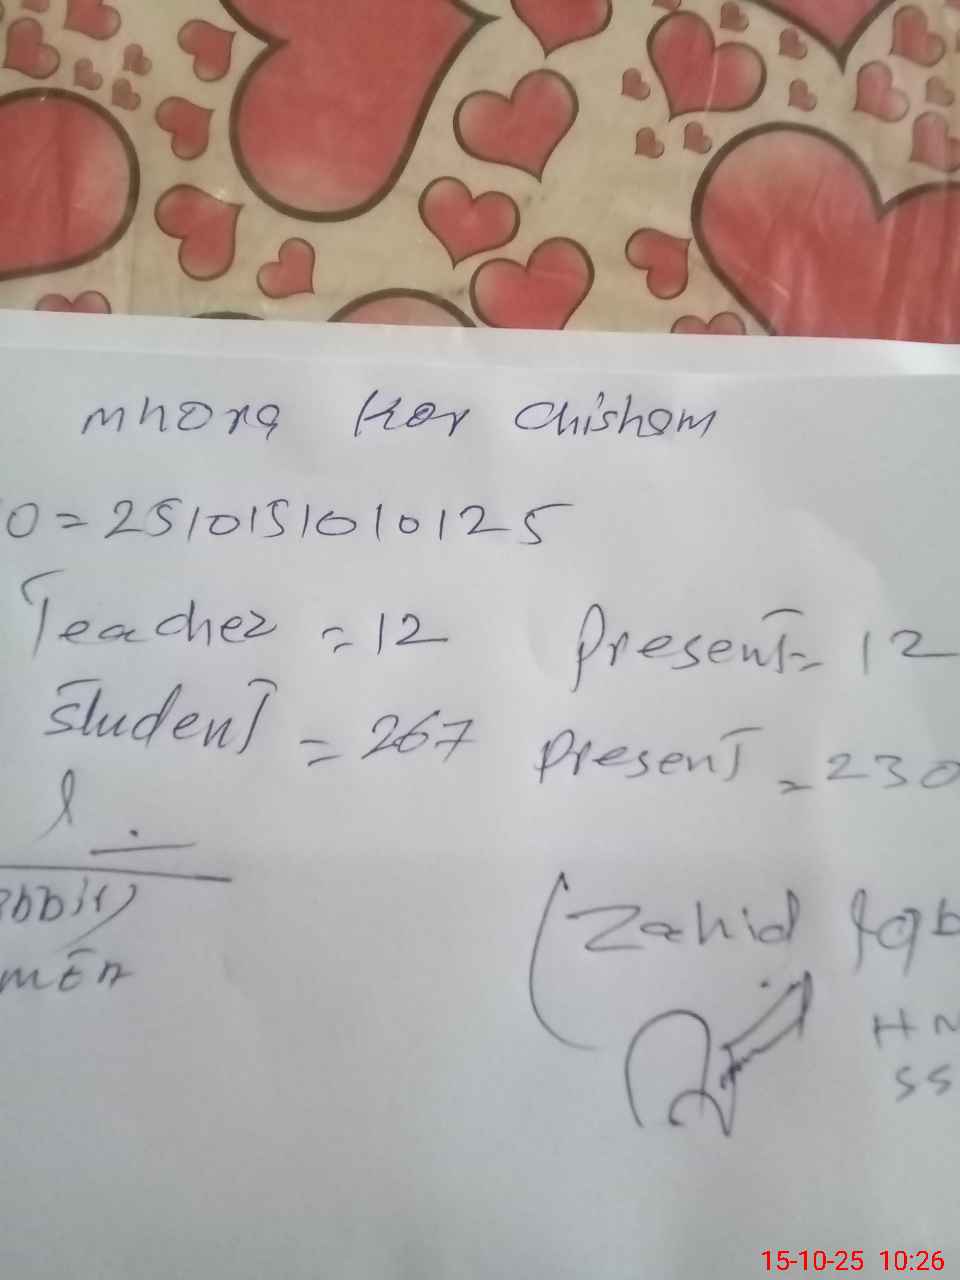 mhorg Kor Chishom
0 = 251015101010125
Teacher = 12 Present = 12
Student = 267 Present = 230
(Zahid Iqb
HN
SS
15-10-25 10:26